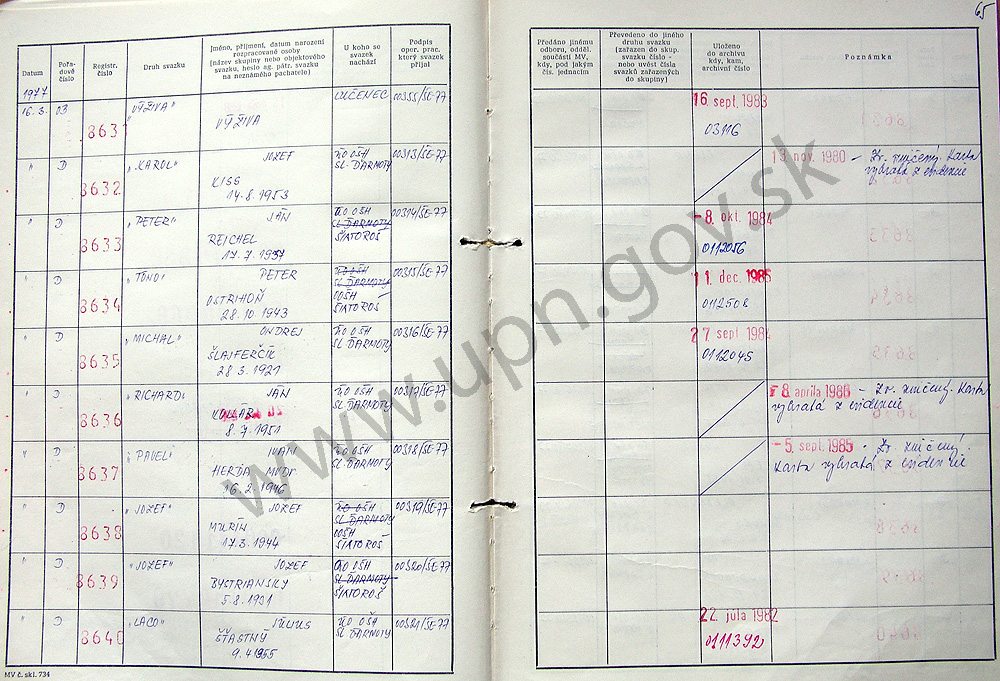 65
Datum
Pořa-
dové
číslo
Registr.
číslo
Druh svazku
Jméno, příjmení, datum narození
rozpracované osoby
(název skupiny nebo objektového
svazku, heslo ag. pátr. svazku
na neznámého pachatele)
U koho se
svazek
nachází
Podpis
oper. prac.
který svazek
přijal
Předáno jinému
odboru, oděl.
součásti MV,
kdy, pod jakým
čís. jednacím
Převedeno do jiného
druhu svazku
(zařazen do skup.
svazku číslo -
nebo uvést čísla
svazků zařazených
do skupiny)
Uloženo
do archivu
kdy, kam,
archivní číslo
Poznámka
1977
16. 3. 03 8631 „VÝŽIVA" VÝŽIVA LUČENEC 00355/ŠE-77
16 sept. 1983
03116
" D 8632 „KAROL" JOZEF
KISS
14. 8. 1953
OŠH
SL. ĎARMOTY
00313/ŠE-77
19 nov. 1980 - Zv. zničený. Karta
vybratá z evidencie
" D 8633 „PETER" JÁN
REICHEL
17. 7. 1937
OŠH
SL ĎARMOTY
ŠIATOROŠ
00314/ŠE-77
-8. okt. 1984
0112056
" D 8634 „TÓNO" PETER
OSTRIHOŇ
28. 10 1943
OŠH
SL ĎARMOTY
OOŠH
ŠIATOROŠ
00315/ŠE-77
11. dec. 1985
0112508
" D 8635 „MICHAL" ONDREJ
ŠLAJFERČÍK
28. 3. 1921
OŠH
SL. ĎARMOTY
00316/ŠE-77
27 sept 1984
0112045
" D 8636 „RICHARD" JÁN
KOLLÁR
8. 7. 1951
OŠH
SL. ĎARMOTY
00317/ŠE-77
8. apríla 1986 - Zv. zničený. Karta
vybratá z evidencie
" D 8637 „PAVEL" IVAN
HERDA MUDr
16. 2. 1946
OŠH
SL. ĎARMOTY
00318/ŠE-77
- 5. sept. 1985 - Zv. zničený.
Karta vybratá z evidencie
" D 8638 „JOZEF" JOZEF
MURÍN
17. 3. 1944
OŠH
SL. ĎARMOTY
OOŠH
ŠIATOROŠ
00319/ŠE-77
" D 8639 „JOZEF" JOZEF
BYSTRIANSKY
5. 8. 1931
OŠH
SL. ĎARMOTY
ŠIATOROŠ
00320/ŠE-77
" D 8640 „LACO" JÚLIUS
ŠŤASTNÝ
9. 4 1955
OŠH
SL. ĎARMOTY
00321/ŠE-77
22. júla 1982
0111392
MV č. skl. 734
www.upn.gov.sk